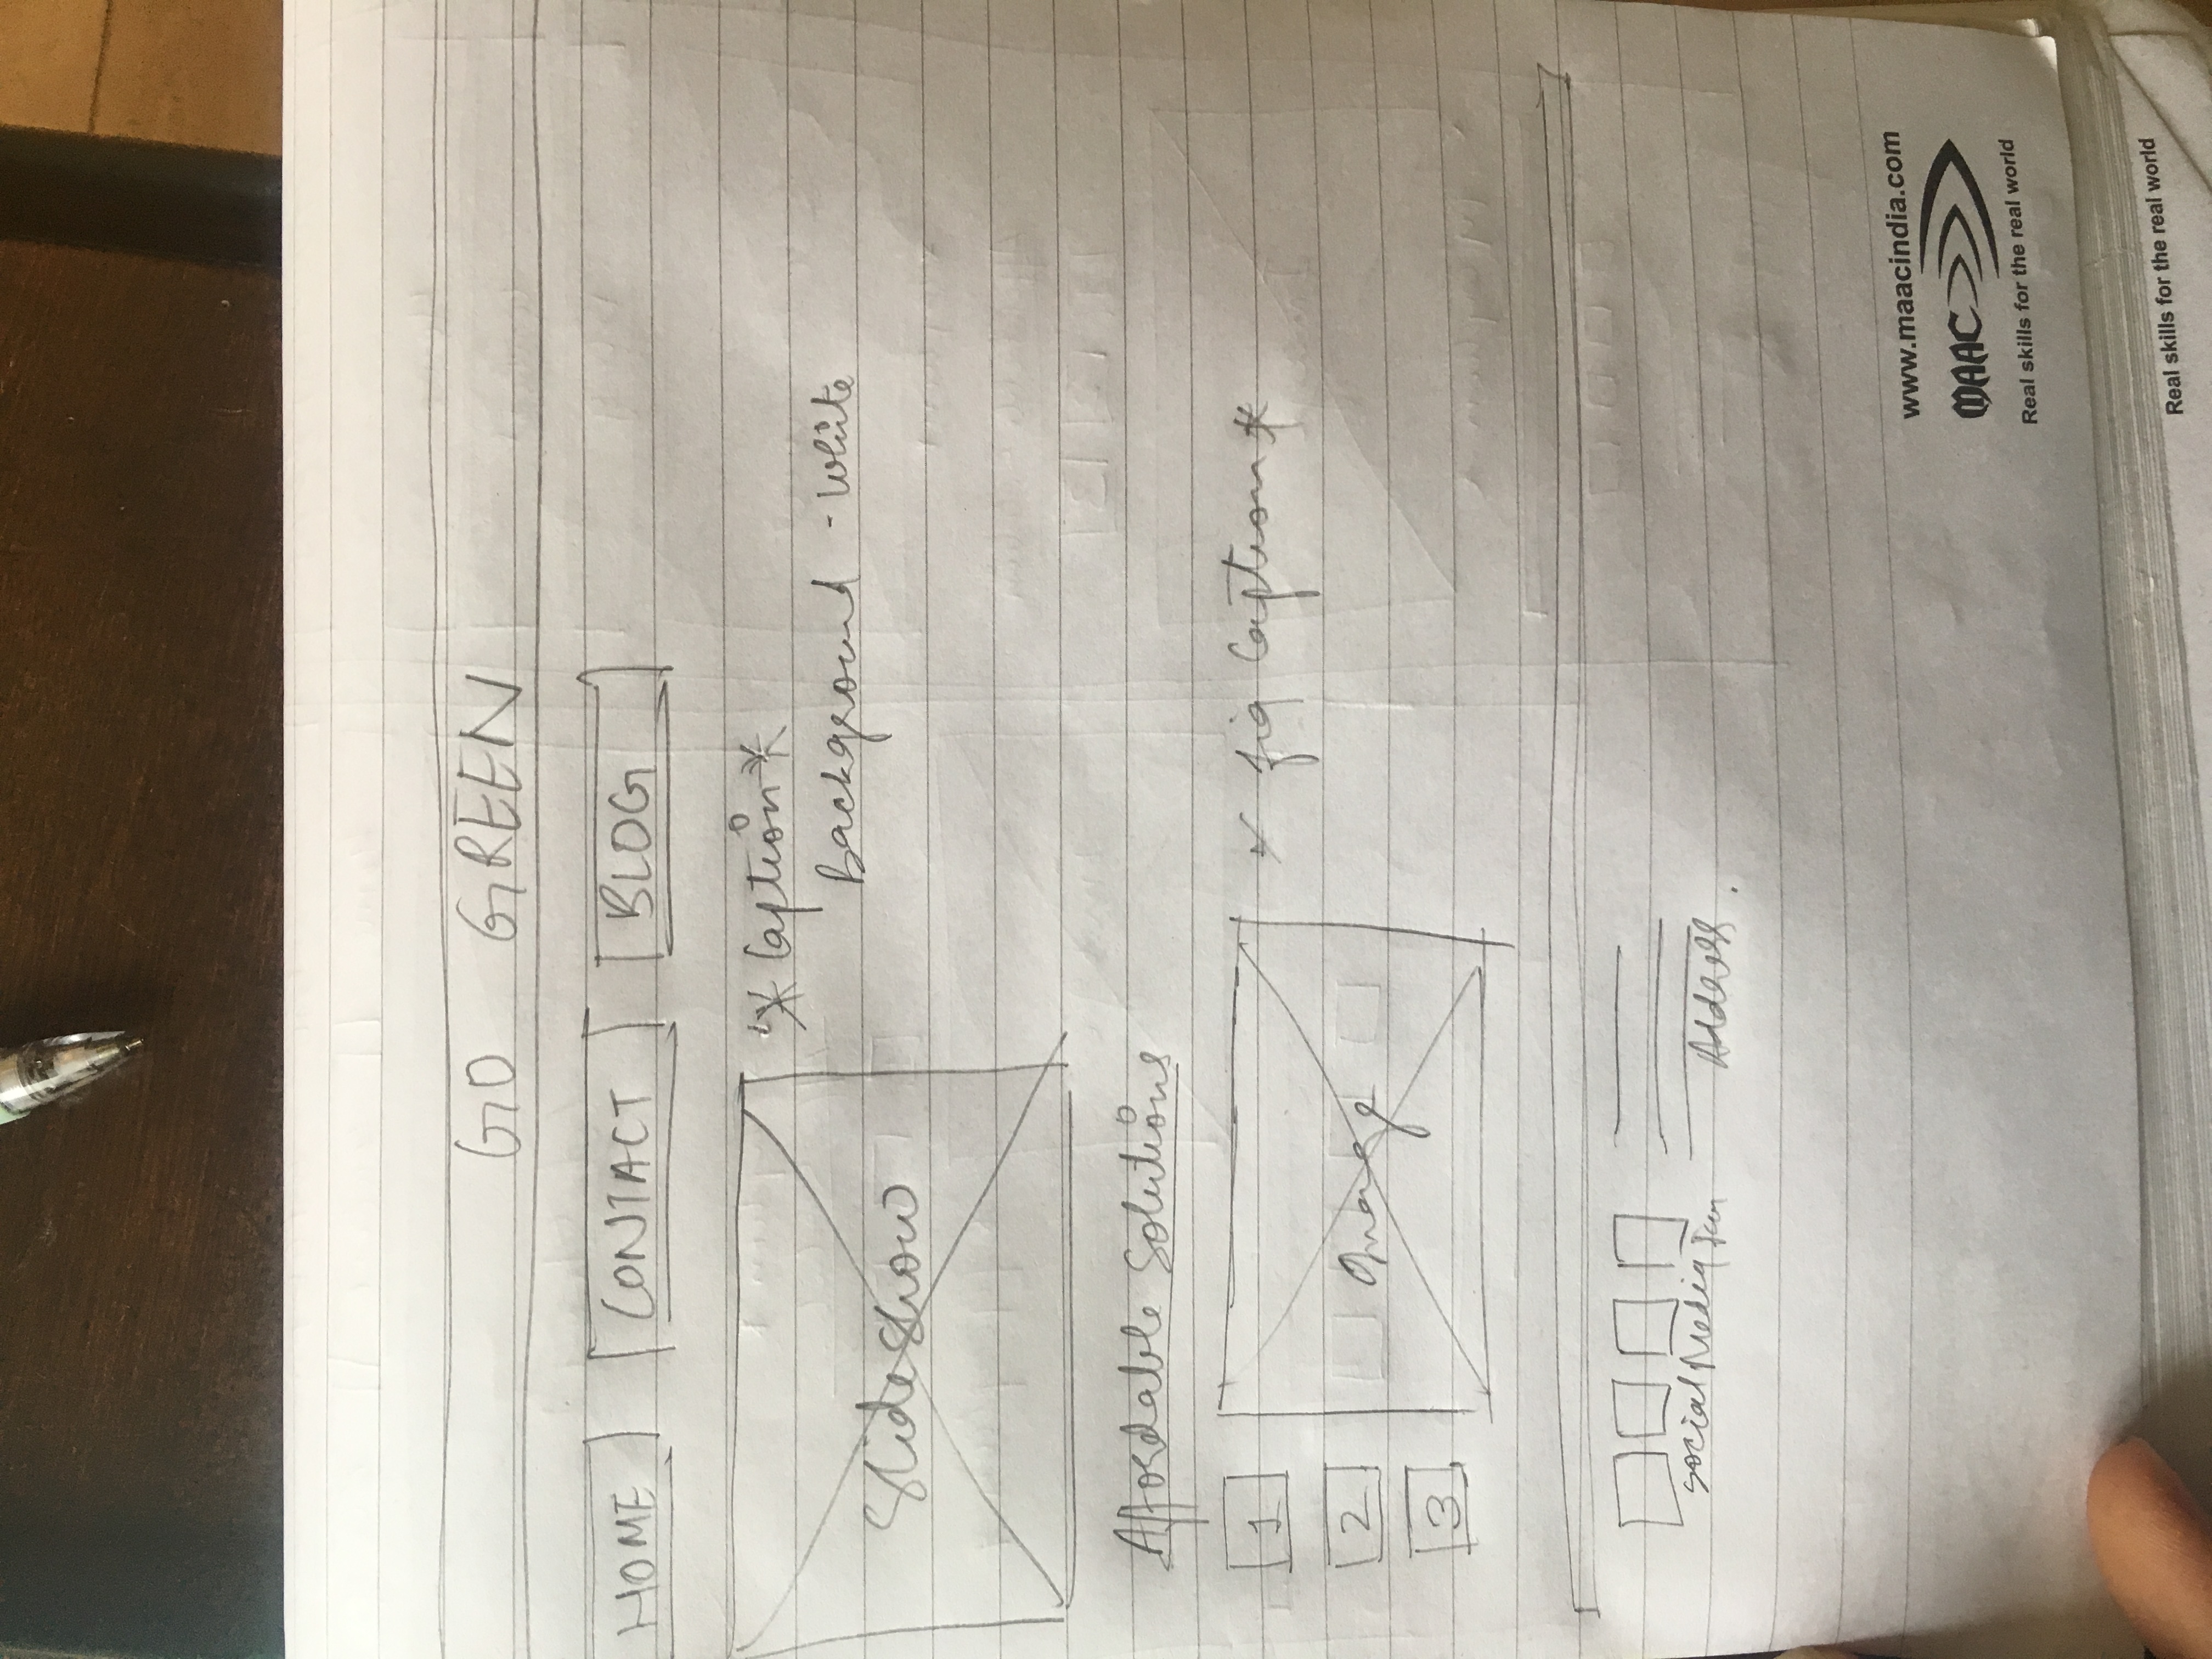 GO GREEN
HOME CONTACT BLOG
* Caption *
Background - White
Slideshow
Affordable Solutions
1 * fig Caption *
2 Image
3
Social Media Address.
www.maacindia.com
MAAC
Real skills for the real world
Real skills for the real world